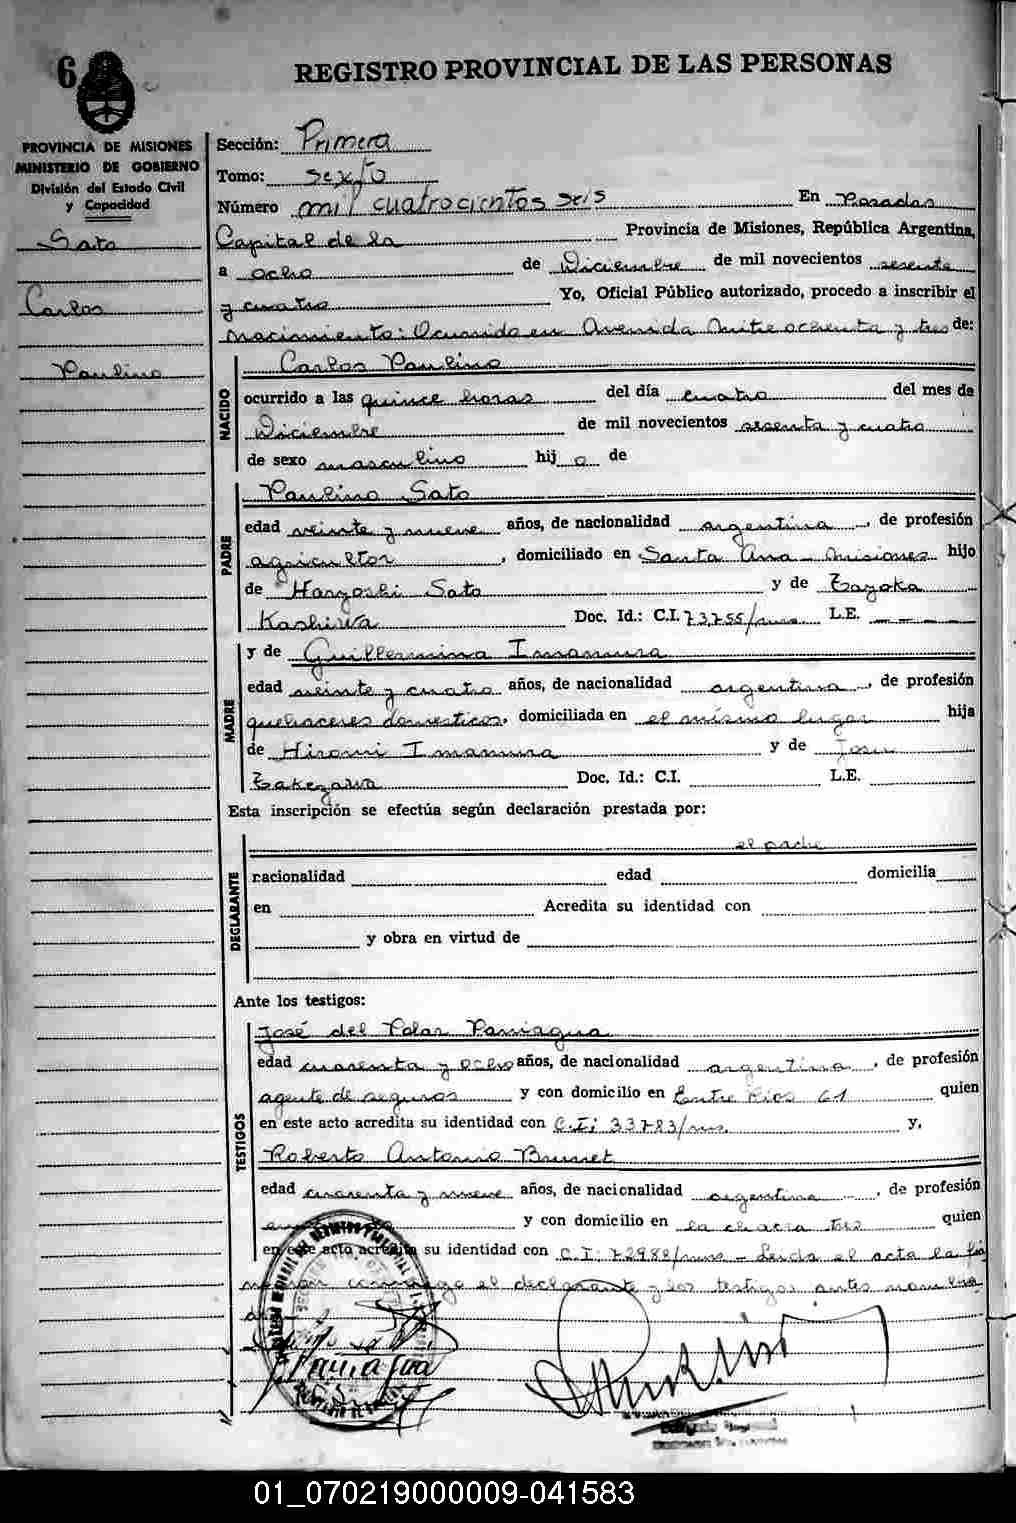 6
REGISTRO PROVINCIAL DE LAS PERSONAS
PROVINCIA DE MISIONES
MINISTERIO DE GOBIERNO
División del Estado Civil
y Capacidad
Sato
Carlos
Paulino
Sección: Primera
Tomo: sexto
Número mil cuatrocientos seis En Posadas
Capital de la Provincia de Misiones, República Argentina,
a ocho de Diciembre de mil novecientos sesenta
y cuatro Yo, Oficial Público autorizado, procedo a inscribir el
nacimiento: Ocurrido en Avenida Mitre ochenta y tres de:
NACIDO
Carlos Paulino
ocurrido a las quince horas del día cuatro del mes de
Diciembre de mil novecientos sesenta y cuatro
de sexo masculino hijo de
PADRE
Paulino Sato
edad veinte y nueve años, de nacionalidad argentina, de profesión
agricultor, domiciliado en Santa Ana - Misiones hijo
de Haryoshi Sato y de Tayoka
Kashiwa Doc. Id.: C.I. 73.755/mnes L.E. - - - -
MADRE
y de Guillermina Imamura
edad veinte y cuatro años, de nacionalidad argentina, de profesión
quehaceres domesticos, domiciliada en el mismo lugar hija
de Hiromi Imamura y de
Takezawa Doc. Id.: C.I. L.E.
Esta inscripción se efectúa según declaración prestada por:
DECLARANTE
el padre
nacionalidad edad domicilia
en Acredita su identidad con
y obra en virtud de
Ante los testigos:
TESTIGOS
José del Pilar Paniagua
edad cuarenta y ocho años, de nacionalidad argentina, de profesión
agente de seguros y con domicilio en Entre Rios 61 quien
en este acto acredita su identidad con C.I: 33783/mns. y,
Roberto Antonio Brunet
edad cuarenta y nueve años, de nacionalidad argentina, de profesión
y con domicilio en la chacra tres quien
en este acto acredita su identidad con C.I: 72988/mnes - Leida el acta la fir
man conmigo el declarante y los testigos antes nombra
Paniagua
01_070219000009-041583